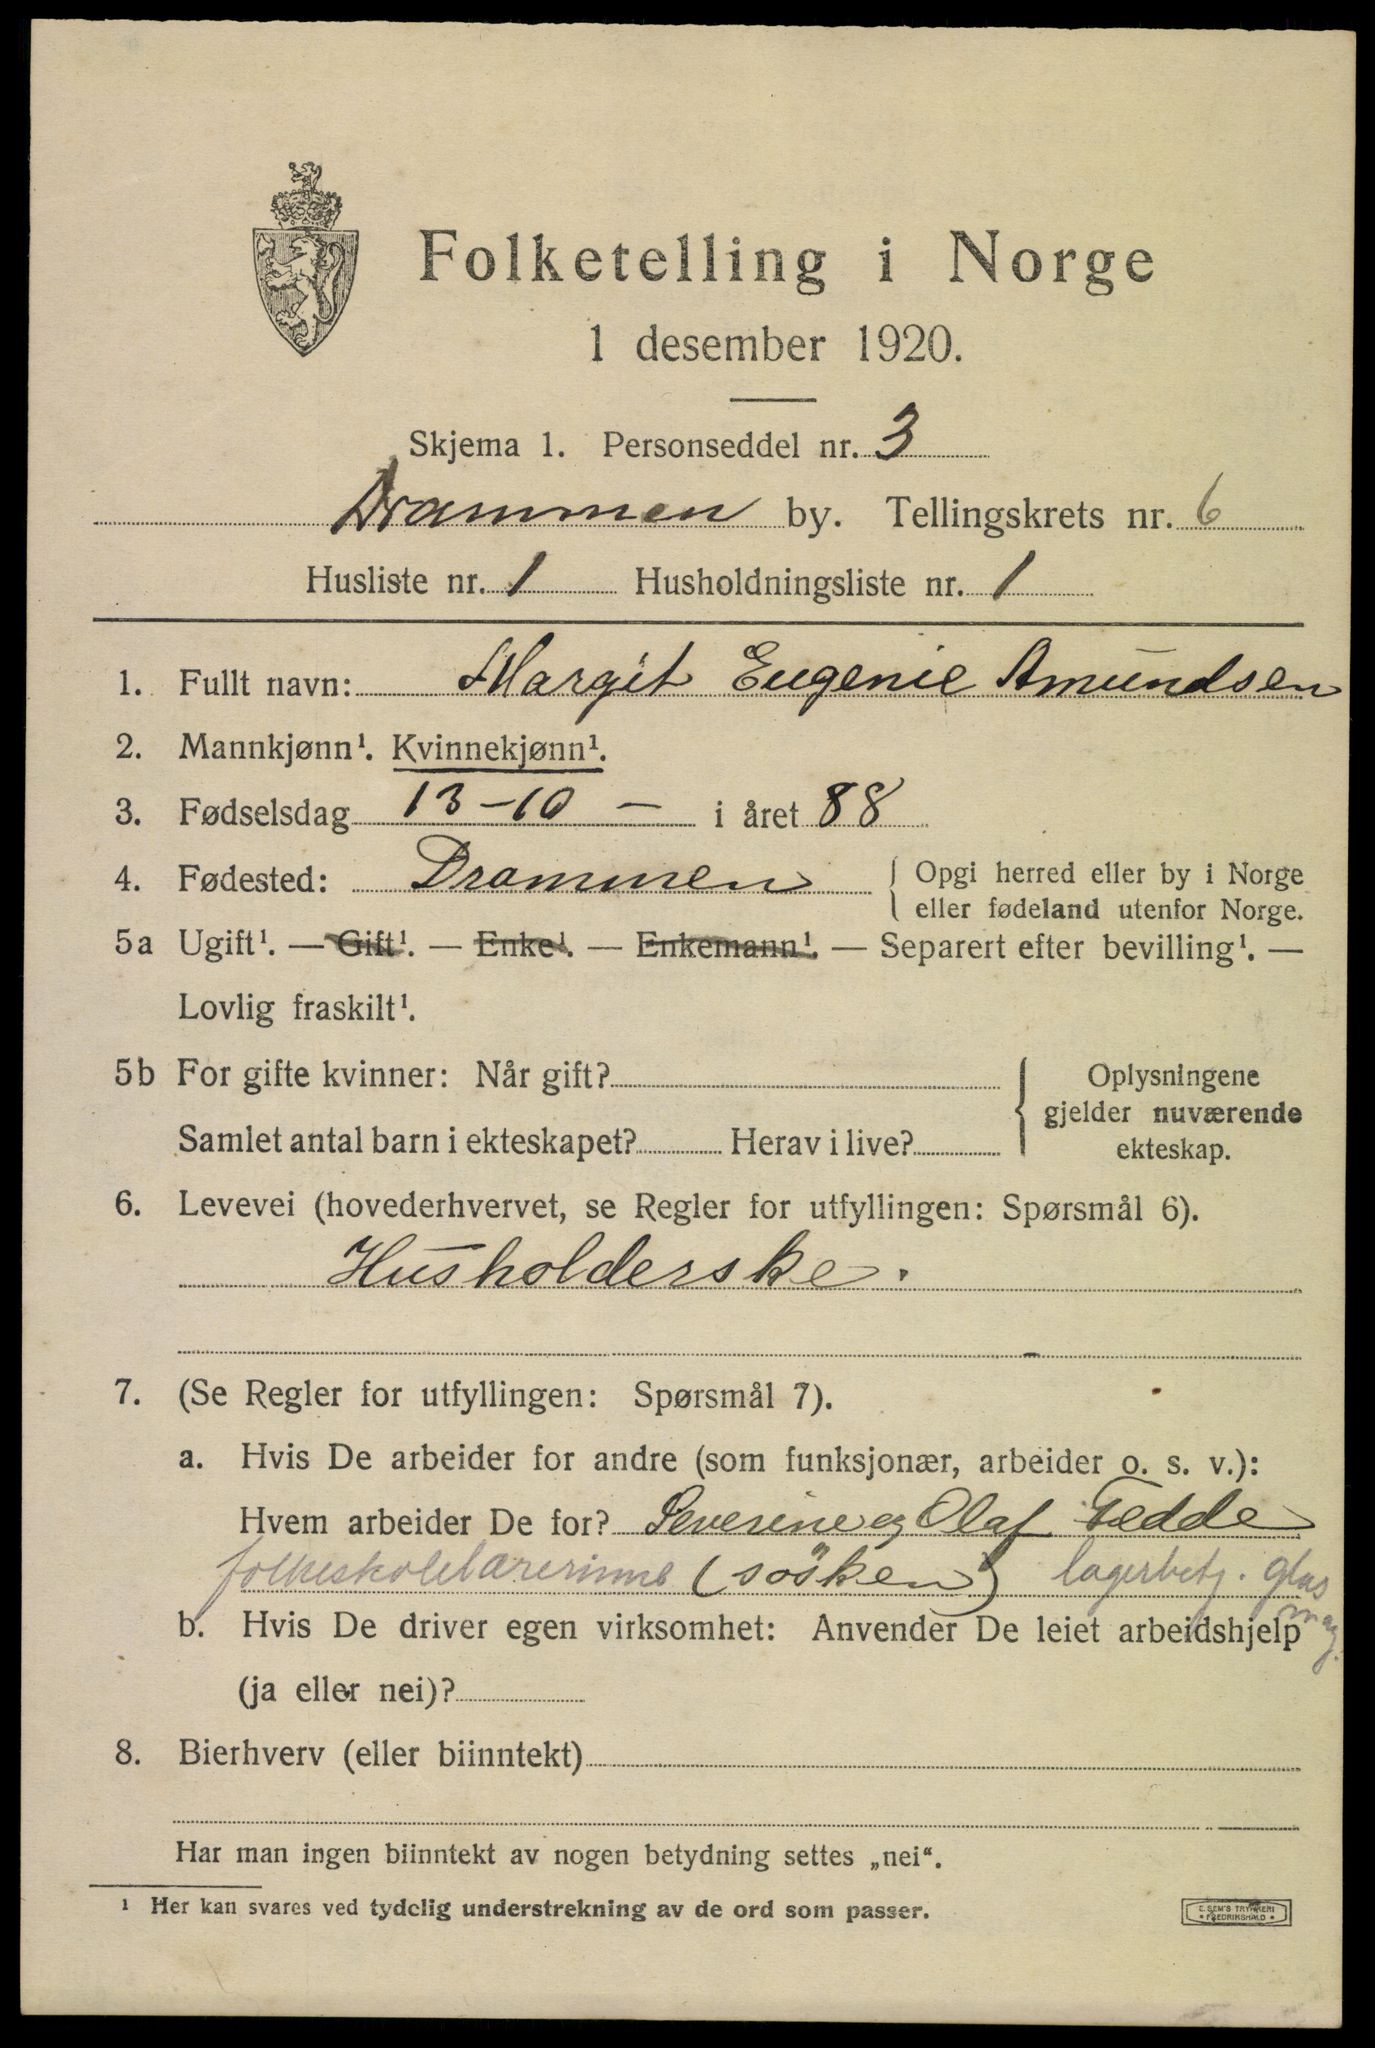 Folketelling i Norge
1 desember 1920.
Skjema 1. Personseddel nr. 3
Drammen by. Tellingskrets nr. 6
Husliste nr. 1 Husholdningsliste nr. 1
1. Fullt navn: Margit Eugenie Amundsen
2. Mannkjønn¹. Kvinnekjønn¹.
3. Fødselsdag 13-10 - i året 88
4. Fødested: Drammen { Opgi herred eller by i Norge
eller fødeland utenfor Norge.
5a Ugift¹. — Gift¹. — Enke¹. — Enkemann¹. — Separert efter bevilling¹. —
Lovlig fraskilt¹.
5b For gifte kvinner: Når gift? { Oplysningene
gjelder nuværende
Samlet antal barn i ekteskapet? Herav i live?
ekteskap.
6. Levevei (hovederhvervet, se Regler for utfyllingen: Spørsmål 6).
Husholderske.
7. (Se Regler for utfyllingen: Spørsmål 7).
a. Hvis De arbeider for andre (som funksjonær, arbeider o. s. v.):
Hvem arbeider De for? Severine og Olaf Tedde
folkeskolelærerinne (søsken) lagerbetj. glas
mag.
b. Hvis De driver egen virksomhet: Anvender De leiet arbeidshjelp
(ja eller nei)?
8. Bierhverv (eller biinntekt)
Har man ingen biinntekt av nogen betydning settes „nei“.
¹ Her kan svares ved tydelig understrekning av de ord som passer.
E. SEM'S TRYKKERI
FREDRIKSHALD